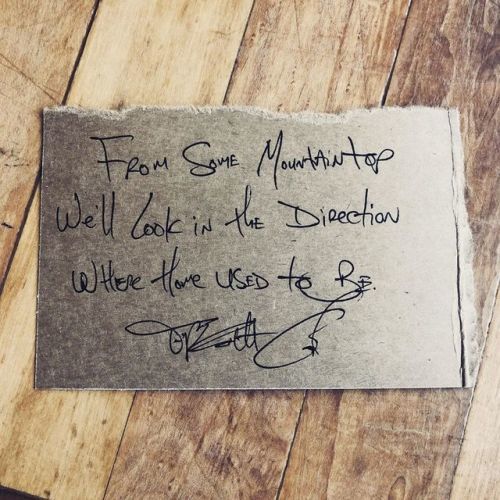 From Some Mountaintop
We'll Look in the Direction
Where Home used to Be.